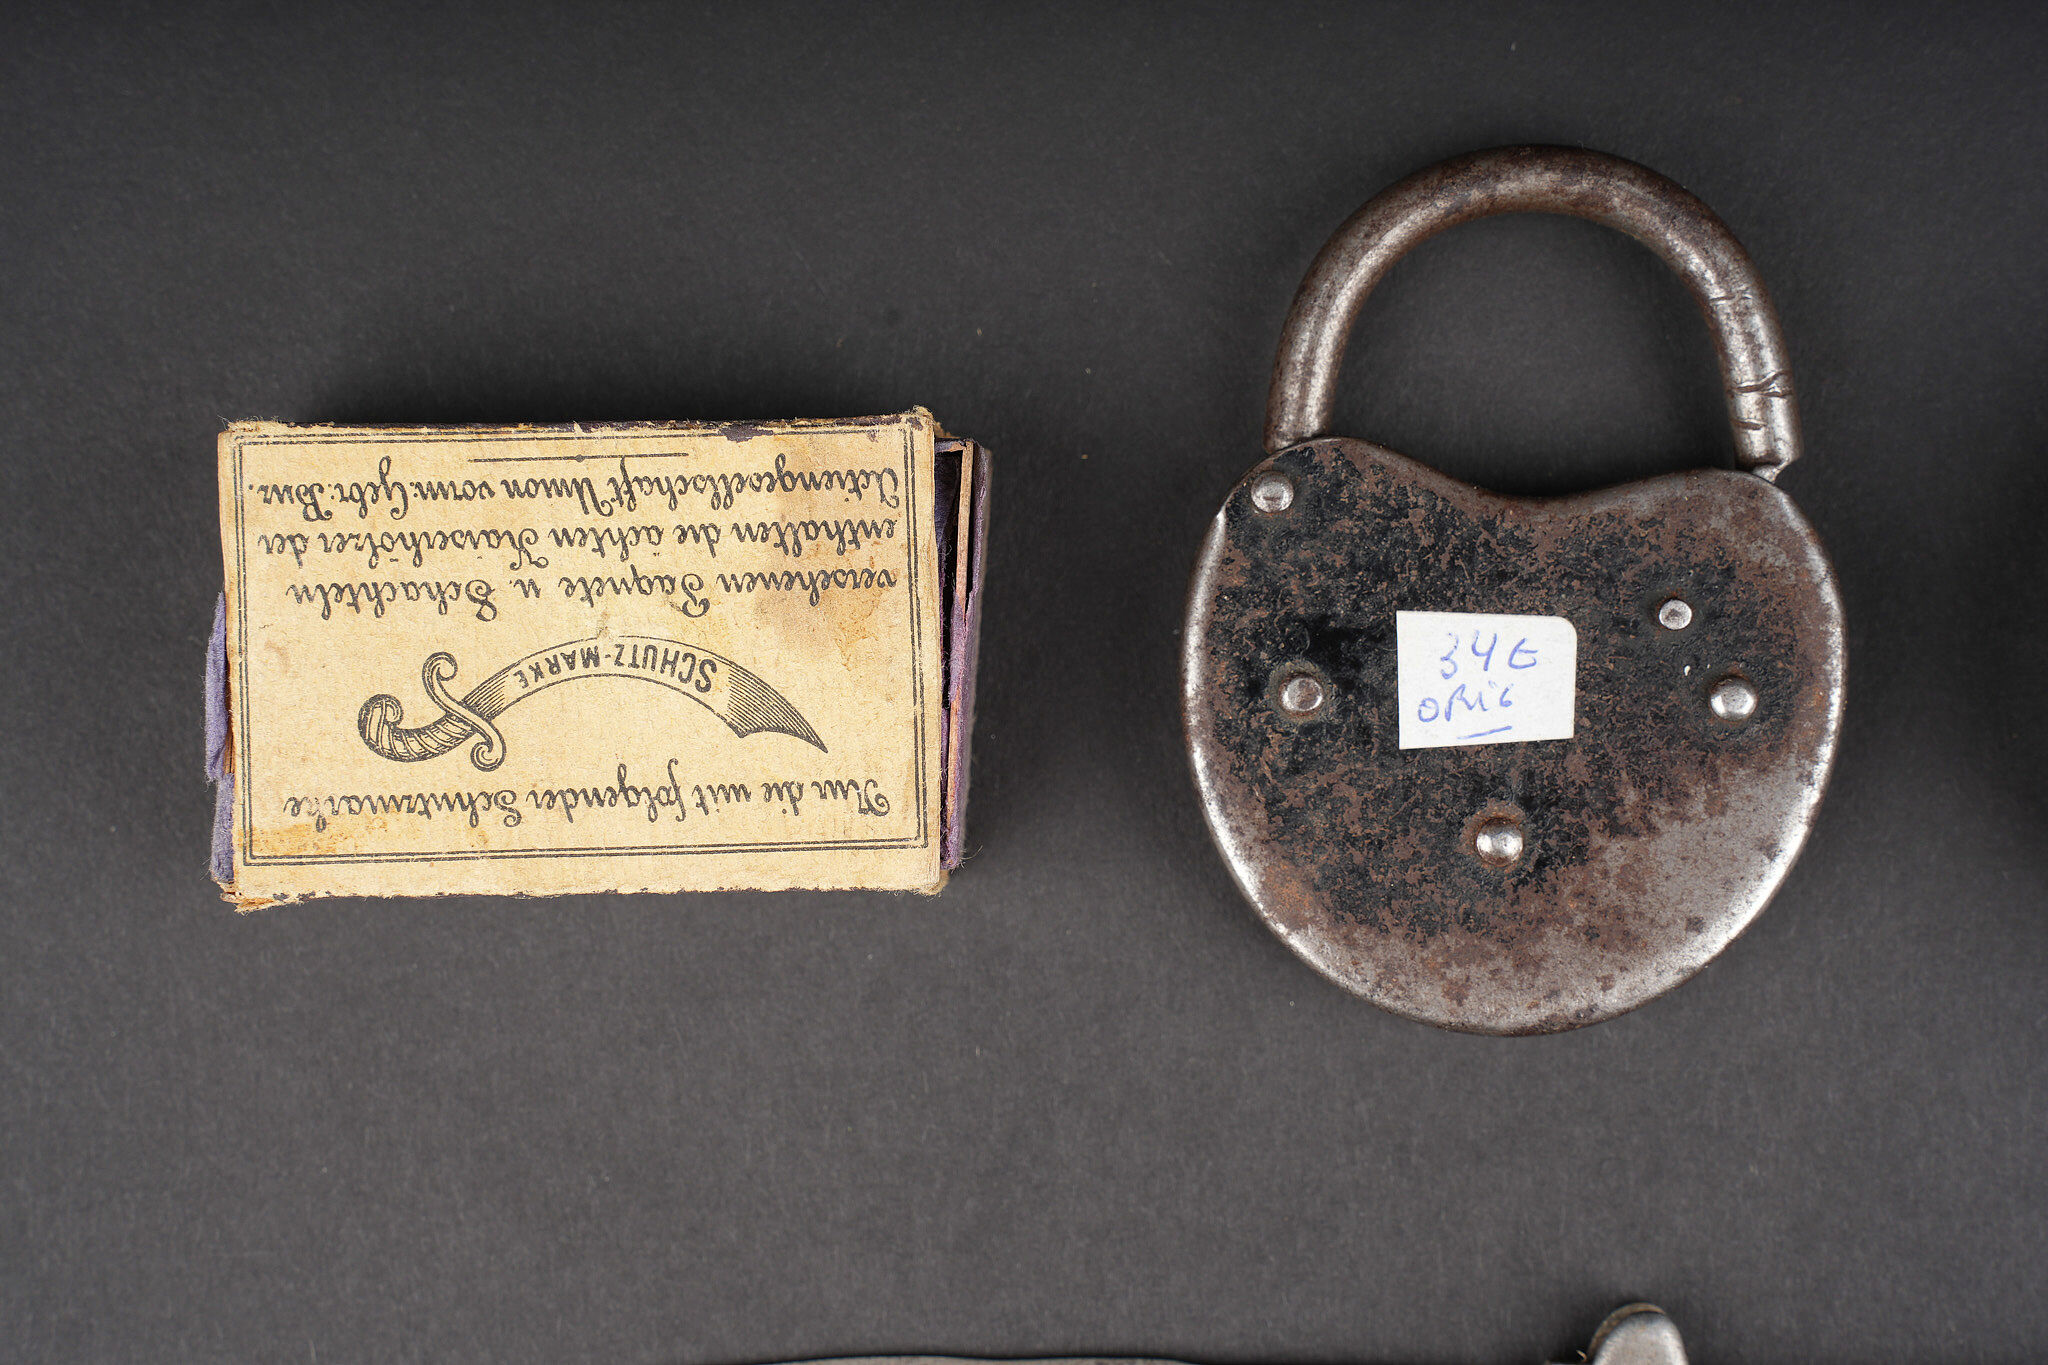 Nur die mit folgender Schutzmarke
SCHUTZ-MARKE
versehenen Paquete u. Schachteln
enthalten die achten Kaiserhölzer der
Actiengesellschaft Union vorm: Gebr:
34E
ORIG